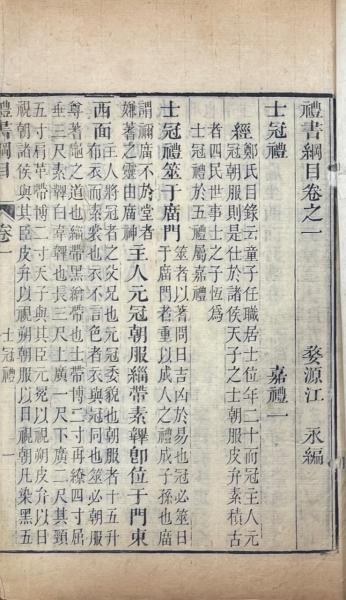 禮書綱目卷之一
婺源江永編
士冠禮
嘉禮一
經
鄭氏目錄云童子任職居士位年二十而冠主人元
冠朝服則是仕於諸侯天子之士朝服皮弁素積古
者四民世事士之子恆為
士冠禮於五禮屬嘉禮
士冠禮筮于庿門
筮者以蓍問日吉凶於易也冠必筮日
於庿門者重以成人之禮成子孫也庿
謂禰庿不於堂者
嫌蓍之靈由庿神
主人元冠朝服緇帶素韠卽位于門東
西面
主人將冠者之父兄也元冠委貌也朝服者十五升
布衣而素裳也衣不言色者衣與冠同也筮必朝服
尊蓍龜之道也緇帶黑繒帶也士帶博二寸再繚四寸屈
垂三尺素韠白韋韠也長三尺上廣一尺下廣二尺其頸
五寸肩革帶博二寸天子與其臣元冕以視朔皮弁以日
視朝諸侯與其臣皮弁以視朔朝服以日視朝凡染黑五
禮書綱目
卷一
士冠禮
一